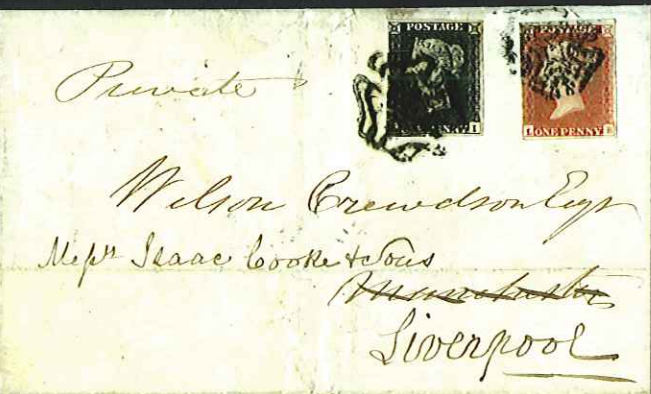 POSTAGE POSTAGE
I ONE PENNY
Private
Wilson Crewdson Esqr
Messrs Isaac Cooke & Sons
Manchester
Liverpool